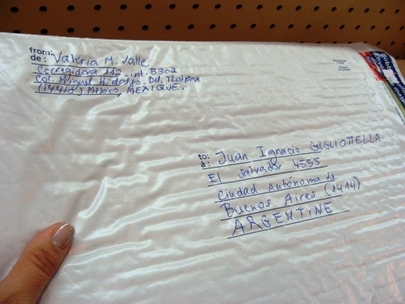 from:
de: Valeria M. Valle
Corregidora 112, int. B302
Col. Miguel Hidalgo. Del. Tlalpan
(14410) México, MEXIQUE.
to:
a: Juan Ignacio GIGLIOTELLA
El Salvador 4555
Ciudad Autónoma de
Buenos Aires (1414)
ARGENTINE